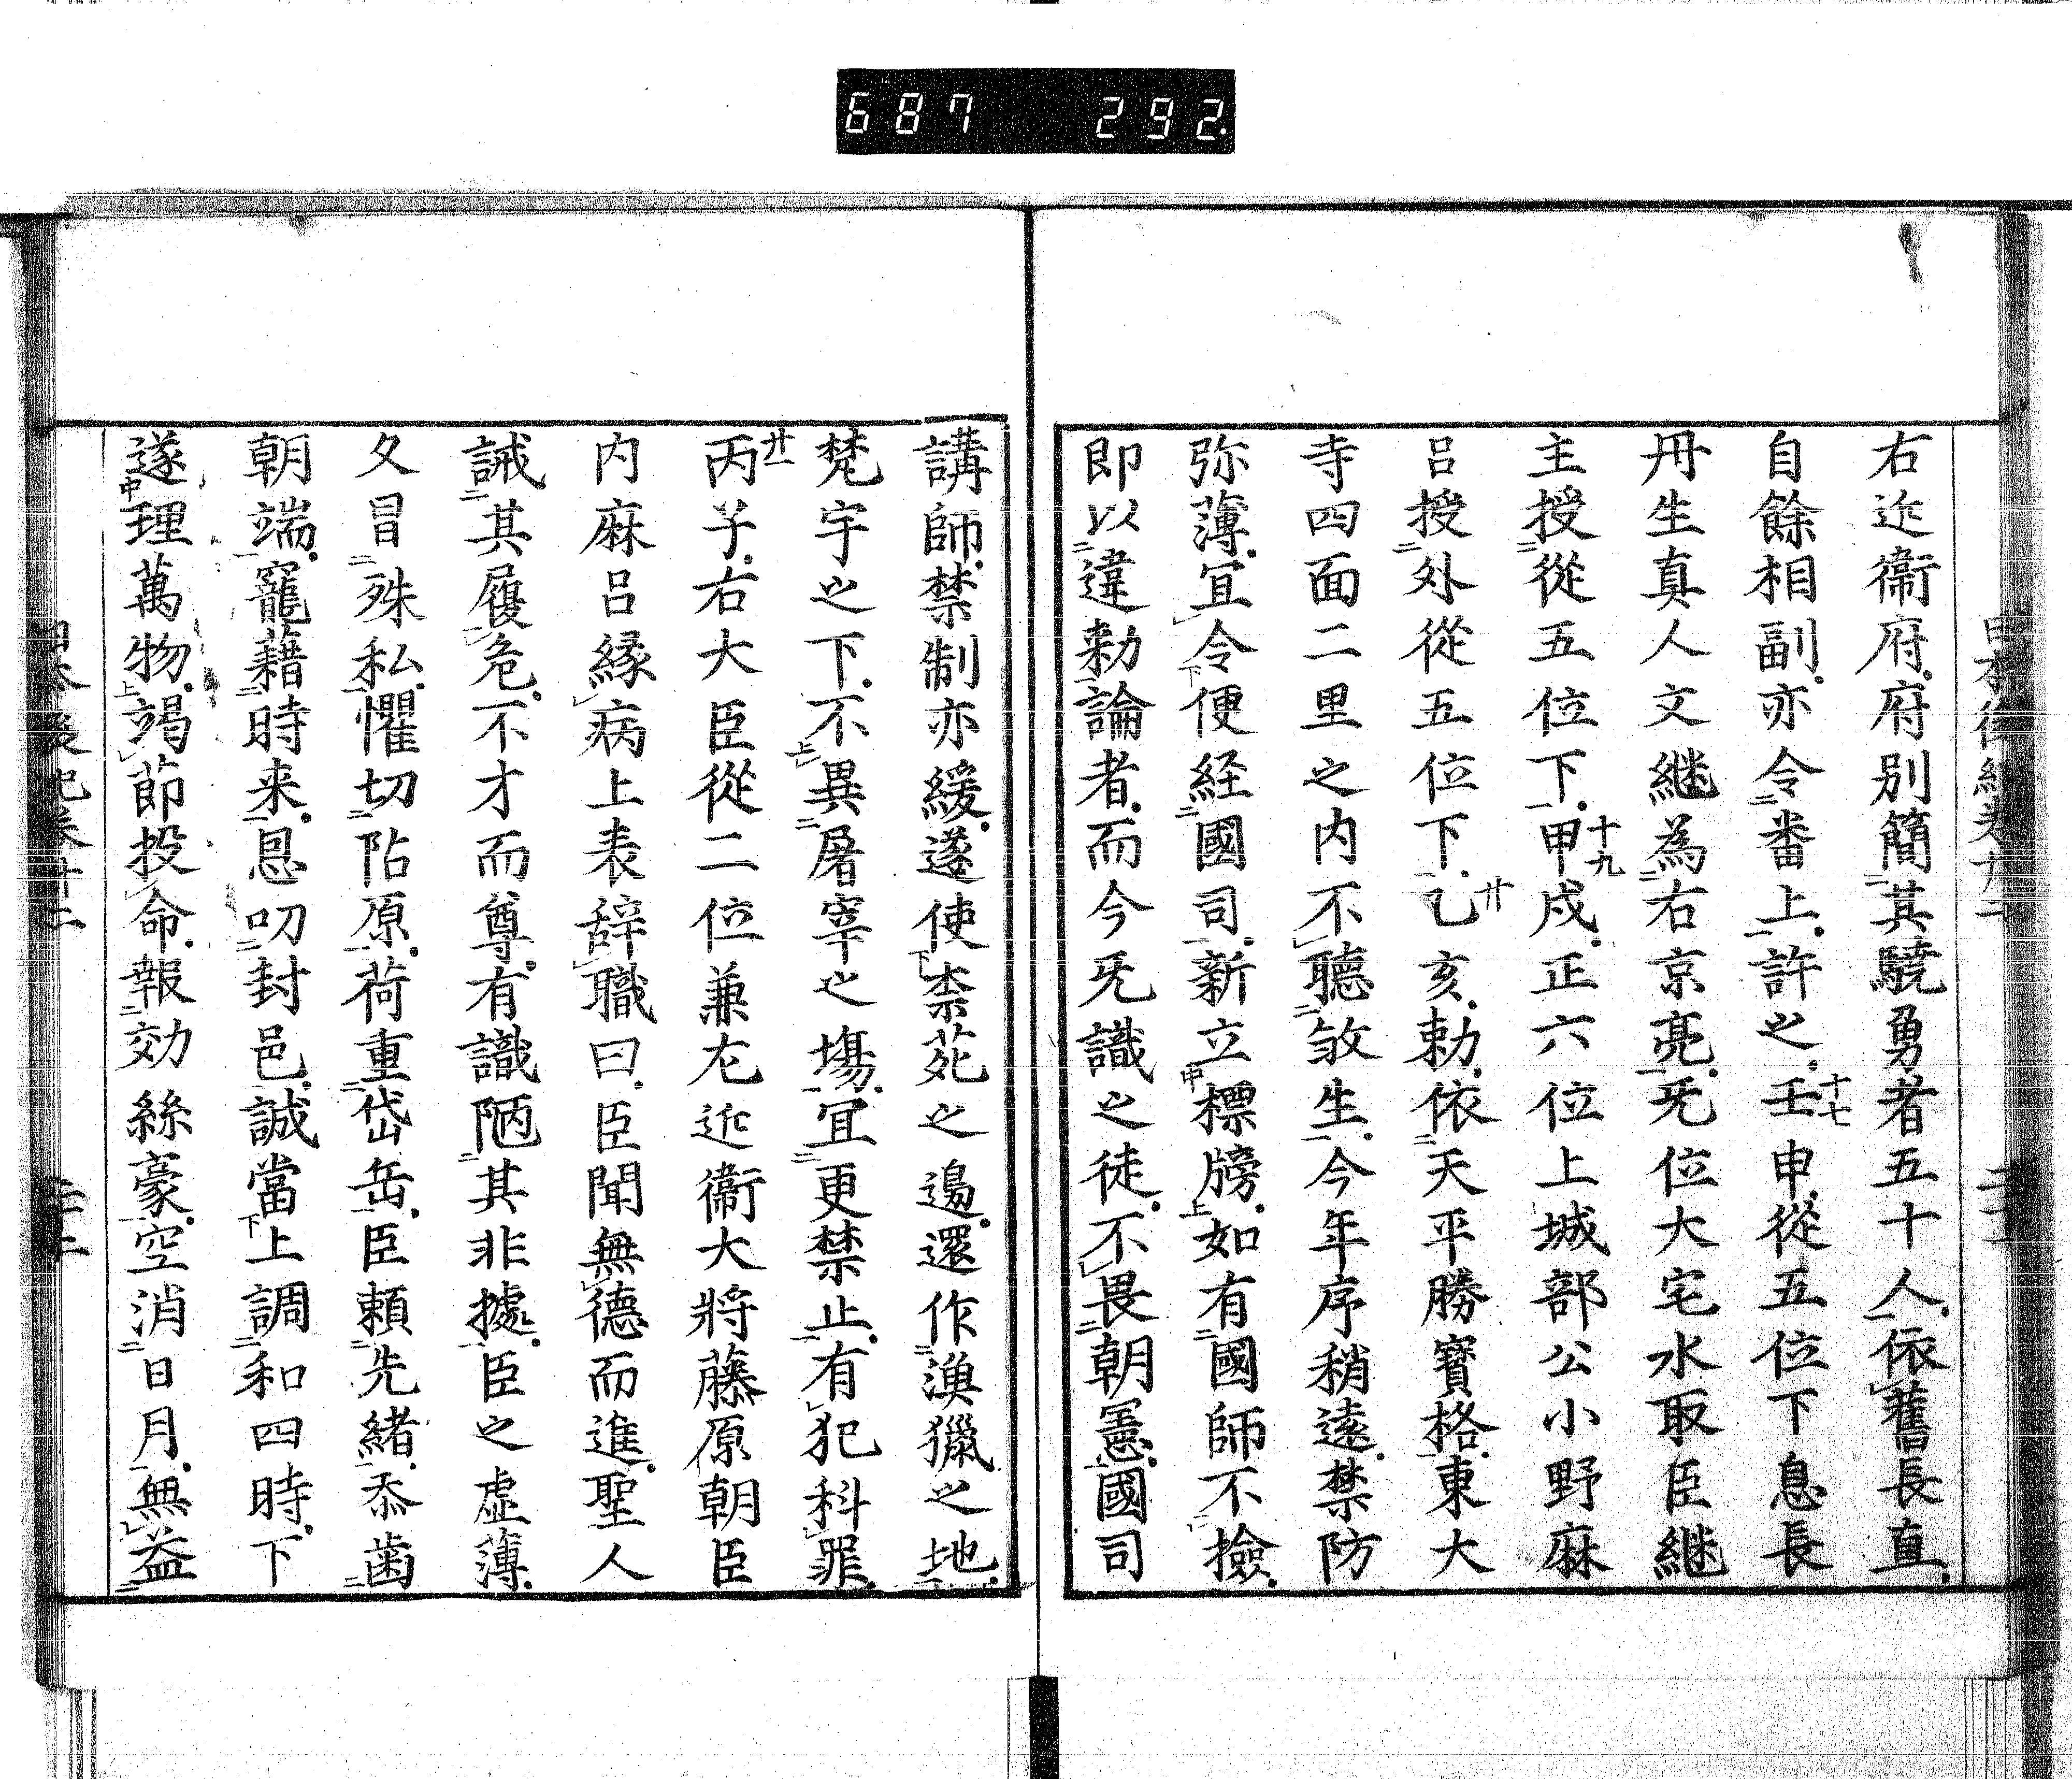 687 292.
右近衛府府別簡其驍勇者五十人依舊長直
自餘相副亦令番上許之十七壬申從五位下息長
丹生真人文継為右京亮旡位大宅水取臣継
主授從五位下十九甲戍正六位上城部公小野麻
呂授外從五位下廿乙亥勅依天平勝寳格東大
寺四面二里之内不聴敘生今年序稍遠禁防
弥薄冝令便経國司新立標牓如有國師不撿
即以違勅論者而今旡識之徒不畏朝憲國司
講師禁制亦緩遂使柰苑之邊還作漁獵之地
梵宇之下不異屠宰之場冝更禁止有犯科罪
廿一丙子右大臣從二位兼左近衛大將藤原朝臣
内麻呂縁病上表辞職曰臣聞無德而進聖人
誡其履危不才而尊有識陋其非據臣之虛薄
久冒殊私懼切阽原荷重岱岳臣頼先緒忝歯
朝端寵藉時来恩叨封邑誠當上調和四時下
遂理萬物竭節投命報効絲豪空消日月無益
日本後紀巻廿二 二十二